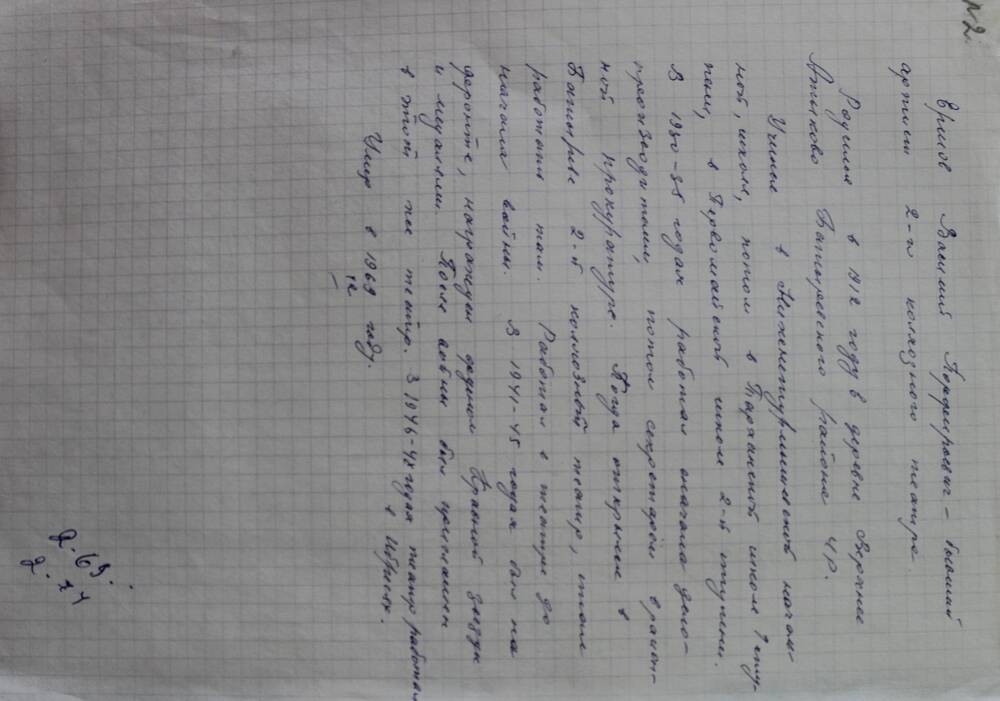 №2.
Ермов Василий Порфирьевич – бывший
артист 2-го колхозного театра.
Родился в 1912 году в деревне Верхнее
Атыково Батыревского района ЧР.
Учился в Нижнетурмышевской началь-
ной, школе, потом в Тарханской школе 1 сту-
пени, в Первомайской школе 2-й ступени.
В 1930-35 годах работал сначала дело-
производителем, потом секретарём в район-
ной прокуратуре. Когда открылся в
Батыреве 2-й колхозный театр, стал
работать там. Работал в театре до
начала войны. В 1941-45 годах был на
фронте, награжден орденом Красной звезды
и медалями. После войны был приглашен
в этот же театр. В 1946-48 годах театр работал
в Ибресях.
Умер в 1969 году.
72
2-69.
2-74